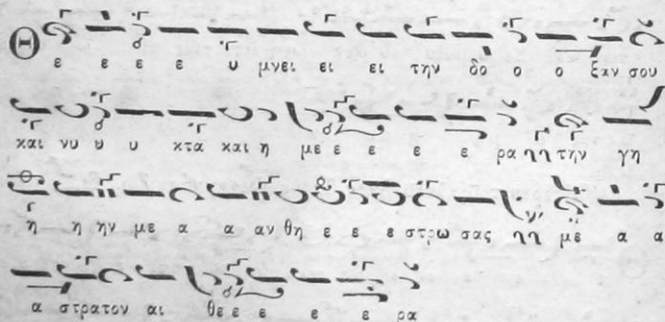 Θ ε ε ε ε υ μνει ει ει την δο ο ο ξαν σου
και νυ υ υ κτα και η με ε ε ε ε ρα την γη
η η ην με α α αν θη ε ε ε στρω σας με α α
α στρατον αι θε ε ε ε ε ρα